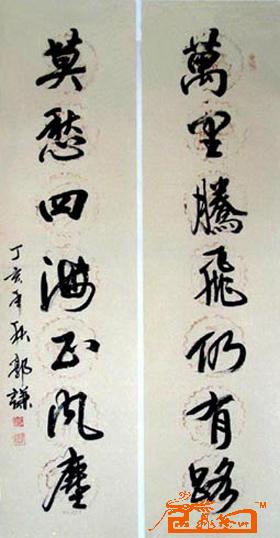 萬里騰飛仍有路
莫愁四海正風塵
丁亥年秋郭謙
TM